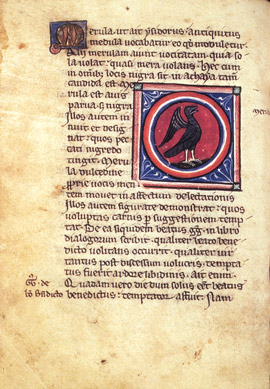 Merula ut ait ysidorus antiquitus
medula vocabatur eo qd moduletur
Alii merulam aiunt vocitatam quia so
la volat quasi mera volans. Hec cum
in omnibus locis nigra sit in achaia tam
candida est. Me
rula est avis
parva & nigra
Illos autem in
nuit et desig
nat quos pec
cati nigredo
tingit. Me
rula dulcedine
proprie vocis men
tem movet in affectum delectationis
Illos autem figurate demonstrat quos
voluptas carnis per suggestionem temp
tat. De ea siquidem beatus gg in libro
dialogorum scribit qualiter beato bene
dicto volitans occurrit qualiter vir
sanctus post discessum volucris tempta
tus fuerit ardore libidinis. Ait enim.
Quadam vero die dum solus esset beatus
benedictus temptator affuit. Nam
merula
Gg. de
benedicto